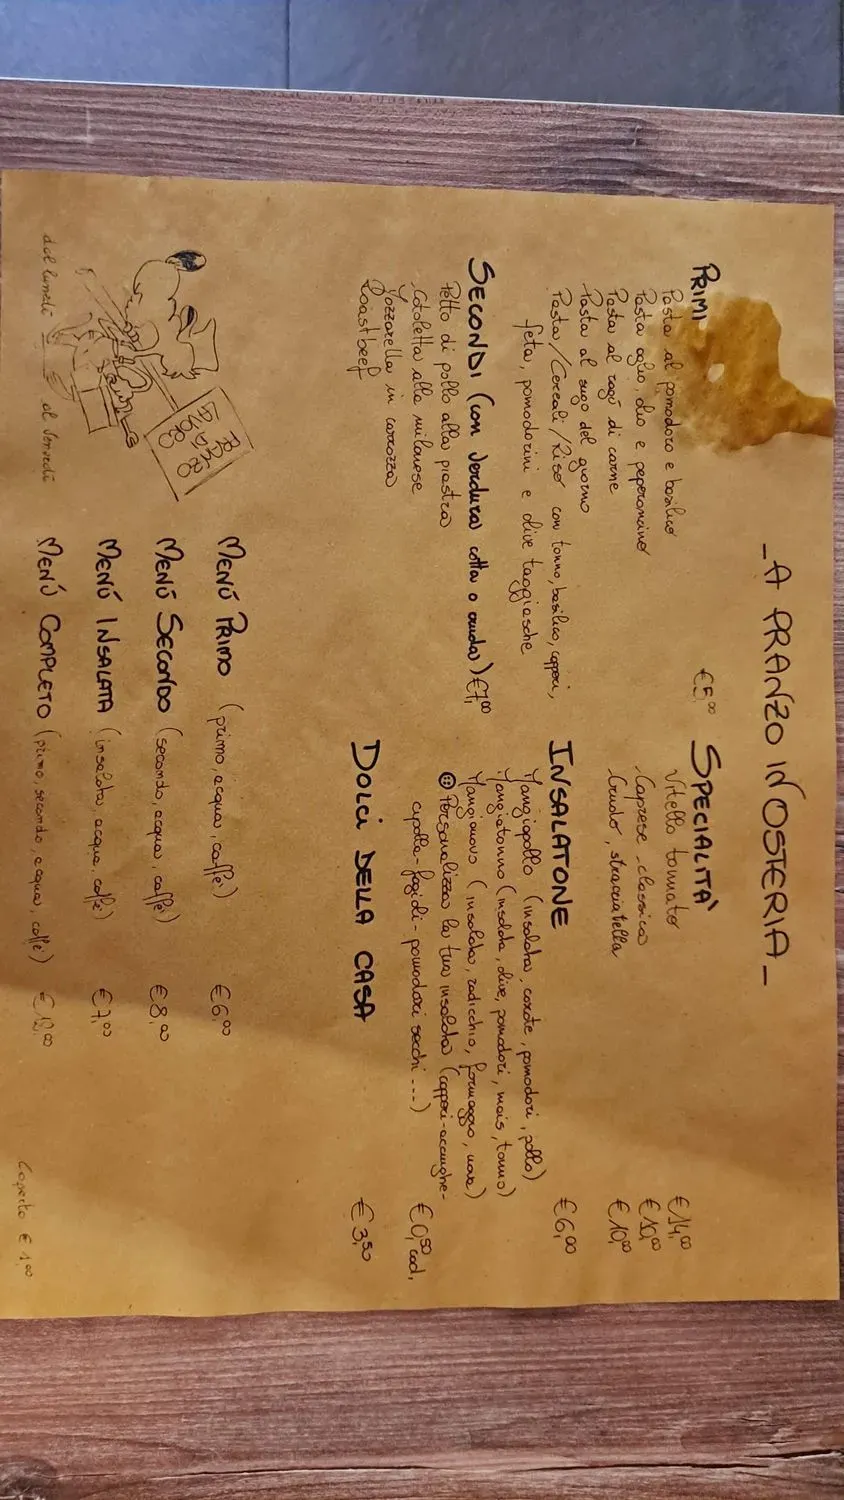 _A PRANZO IN OSTERIA_
PRIMI €5,00
Pasta al pomodoro e basilico
Pasta aglio, olio e peperoncino
Pasta al ragù di carne
Pasta al sugo del giorno
Pasta/Cereali/Riso con tonno, basilico, capperi,
feta, pomodorini e olive taggiasche
SECONDI (con verdura cotta o cruda) €7,00
Petto di pollo alla piastra
Cotoletta alla milanese
Mozzarella in carrozza
Roastbeef
SPECIALITÀ
Vitello tonnato €14,00
Caprese classica €10,00
Crudo, stracciatella €10,00
INSALATONE €6,00
Mangiapollo (insalata, carote, pomodori, pollo)
Mangiatonno (insalata, olive, pomodori, mais, tonno)
Mangiauovo (insalata, radicchio, formaggio, uova)
Personalizza la tua insalata (capperi-acciughe-
cipolla-fagioli-pomodori secchi...) €0,50 cad.
DOLCI DELLA CASA €3,50
PRANZO
DI
LAVORO
dal lunedì al Venerdì
MENÙ PRIMO (primo, acqua, caffè) €6,00
MENÙ SECONDO (secondo, acqua, caffè) €8,00
MENÙ INSALATA (insalata, acqua, caffè) €7,00
MENÙ COMPLETO (primo, secondo, acqua, caffè)
Coperto €1,00